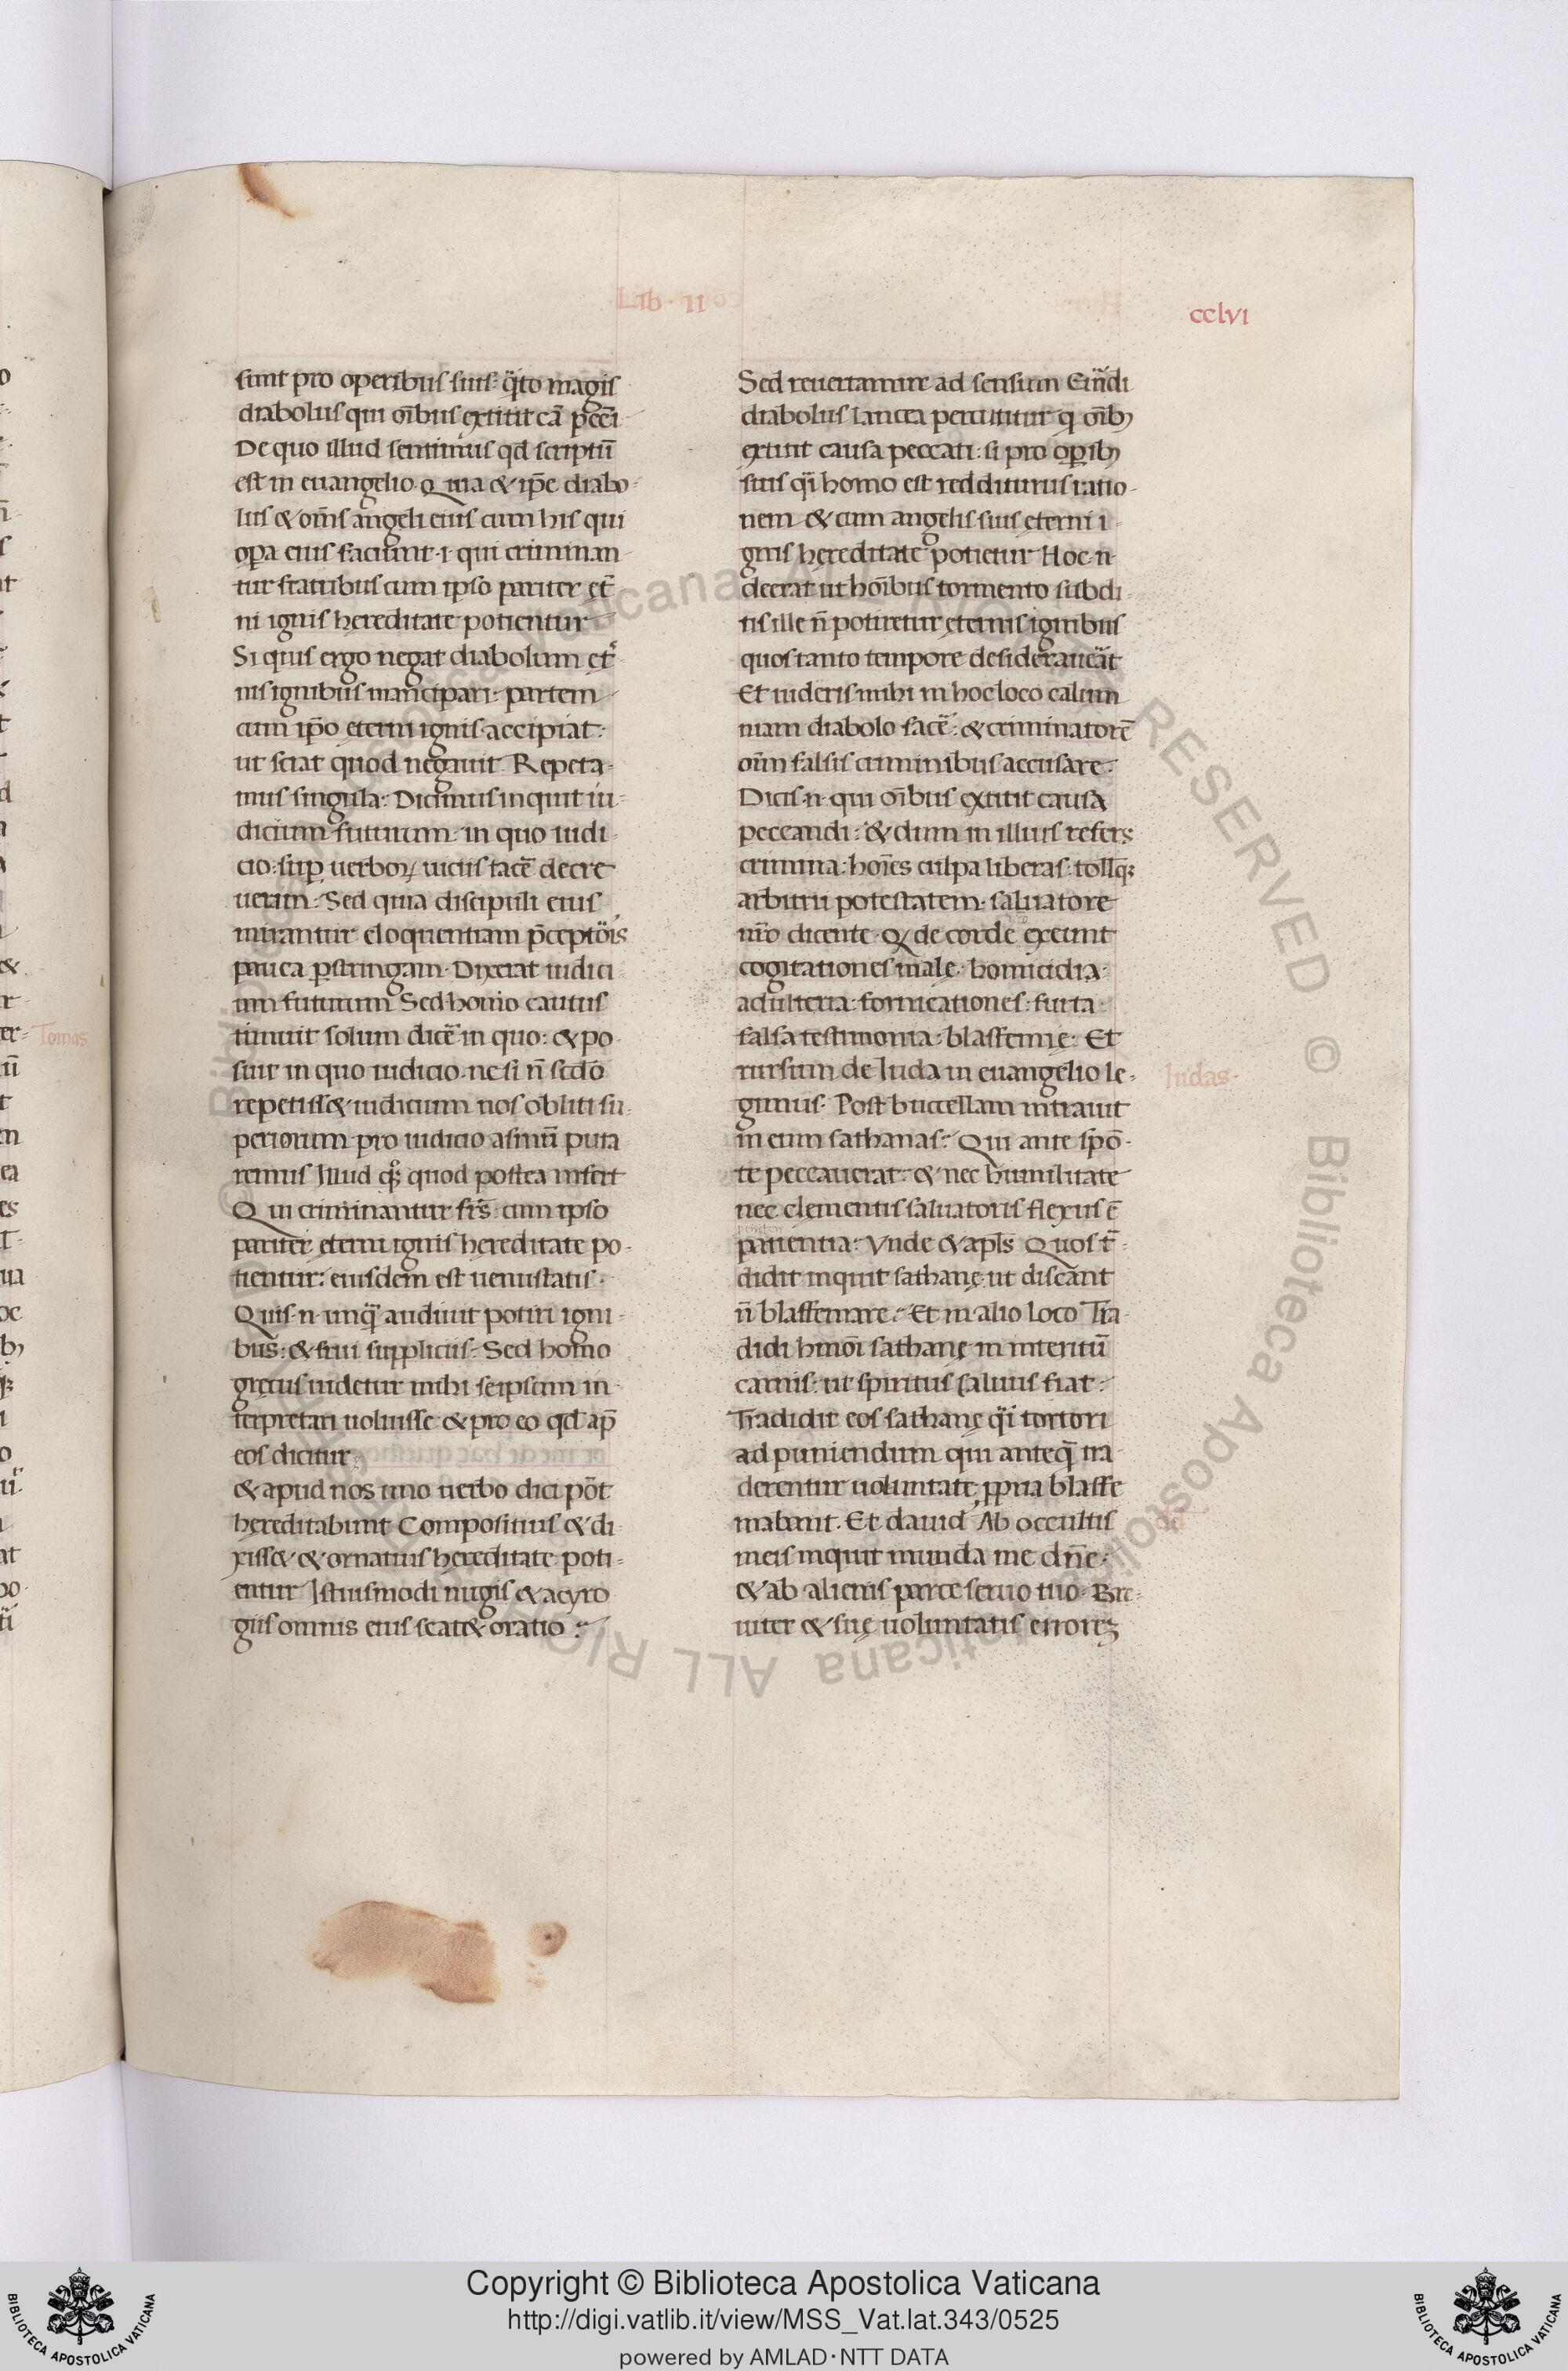 Lib · II
cclvi
sunt pro operibus suis· q̈to magis
diabolus qui oībus extitit cā pcc̄i
De quo illud sentimus qd scriptū
est in euangelio Quia & ip̄e diabo-
lus & om̄s angeli eius cum his qui
opa eius faciunt·i·qui criminan-
tur fratribus cum ipso pariter et̄
ni ignis hereditate potientur
Si quis ergo negat diabolum et̄
nis ignibus mancipari· partem
cum ip̄o eterni ignis accipiat:
ut sciat quod negauit· Repeta-
mus singula: Dicimus inquit iu-
dicium futurum· in quo iudi-
cio: sup uerboꝝ uiciis tace᷑ decre
ueram· Sed quia discipuli eius
mirantur eloquentiam p̄ceptōis
pauca pstringam· Dixerat iudici-
um futurum Sed homo cautus
timuit solum dice᷑ in quo: & po-
suit in quo iudicio· ne si n̄ scd̄o
repetiss& iudicium nos obliti su-
periorum pro iudicio asinū puta
remus Illud qꝫ quod postea infert
Qui criminantur frs̄ cum ipso
pariter eterni ignis hereditate po-
tientur: eiusdem est uenustatis·
Quis·n·unq̄ audiuit potiri igni-
bus: & frui suppliciis: Sed homo
grecus uidetur mihi seipsum in-
terpretari uoluisse & pro eo qd ap̄
eos dicitur
& apud nos uno uerbo dici pōt
hereditabunt Compositius & di-
xiss& & ornatius hereditate poti-
entur Istiusmodi nugis & acyro
giis omnis eius scat& oratio:
Sed reuertamur ad sensum Eīndi
diabolus lancea percutitur q̇ oīb;
extitit causa peccati: si pro opib;
suis q̈i homo est redditurus ratio-
nem & cum angelis suis eterni i-
gnis hereditate potietur Hoc·n·
deerat ut hoībus tormento subdi-
tis ille n̄ potiretur eternis ignibus
quos tanto tempore desiderauēāt
Et uideris mihi in hoc loco calum
niam diabolo face᷑: & criminatorē
oīm falsis criminibus accusare:
Dicis·n·qui oībus extitit causa
peccandi: & dum in illius refers
crimina: hoīes culpa liberas· tollq̄ꝫ
arbitrii potestatem· saluatore
nr̄o dicente·Q de corde exeunt
cogitationes male· homicidia·
adulteria: fornicationes· furta·
falsa testimonia: blasfemie: Et
rursum de Iuda in euangelio le-
gimus· Post buccellam intrauit
in eum sathanas: Qui ante spō-
te peccauerat: & nec humilitate
nec clementis saluatoris flexus ē
patientia: Vnde & apls̄ Quos t᷑-
didit inquit sathane· ut discant
n̄ blasfemare: Et in alio loco Tra-
didi hmōi sathane in interitū
carnis: ut spiritus saluus fiat:
Tradidit eos sathane q̈i tortori
ad puniendum qui anteq̄ tra-
derentur uoluntate ppria blasfe
mabant· Et dauid Ab occultis
meis inquit munda me dn̄e:
& ab alienis parce seruo tuo· Bre-
uiter & sue uoluntatis errorꝫ
Iudas·
Tomas
Copyright © Biblioteca Apostolica Vaticana
http://digi.vatlib.it/view/MSS_Vat.lat.343/0525
powered by AMLAD·NTT DATA
BIBLIOTECA APOSTOLICA VATICANA
BIBLIOTECA APOSTOLICA VATICANA